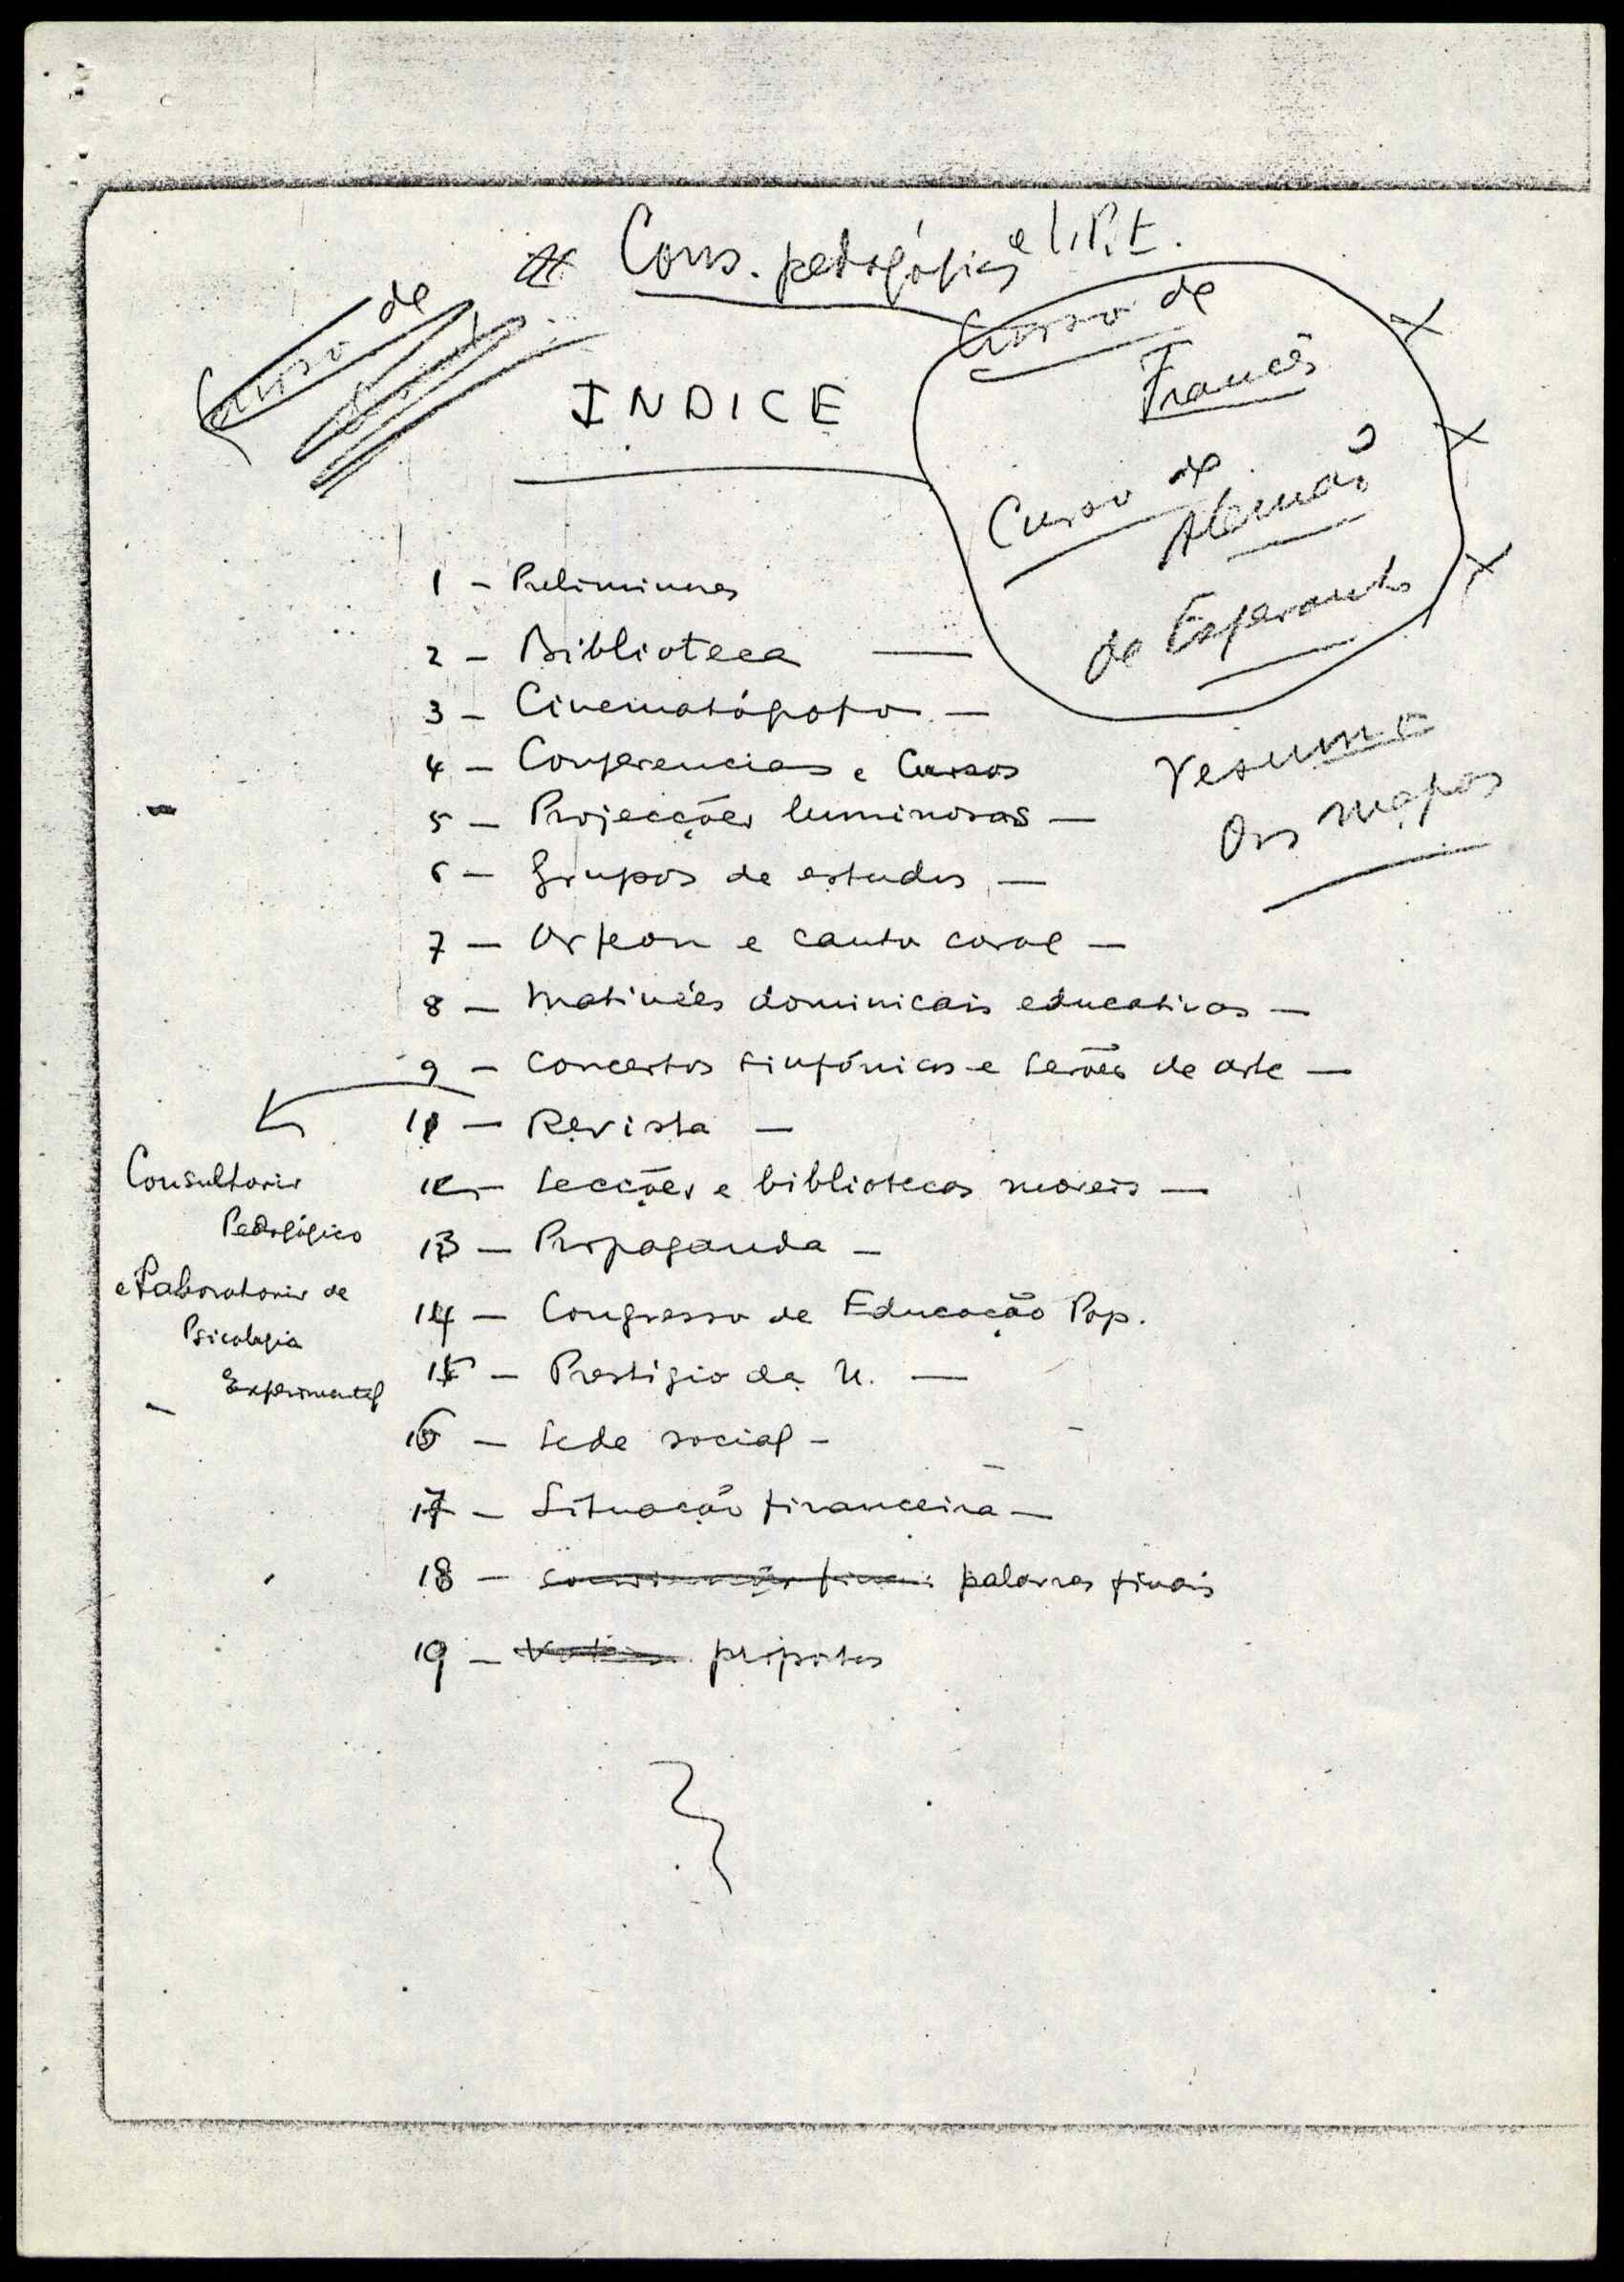 Cons. pedagógico e L.P.E.
Curso de
INDICE
Curso de
Francês
Curso de
Alemão
de Esperanto
resumo
Ors mapas
1 - Preliminares
2 - Biblioteca —
3 - Cinematógrafo —
4 - Conferencias e Cursos
5 - Projecções luminosas —
6 - Grupos de estudos —
7 - Orfeon e canto coral —
8 - Matinées dominicais educativas —
9 - Concertos sinfónicos e serões de arte —
Consultorio
Pedagógico
e Laboratorio de
Psicologia
Experimental
11 - Revista —
12 - Secções e bibliotecas moveis —
13 - Propaganda —
14 - Congresso de Educação Pop.
15 - Prestigio da U. —
16 - Sede social -
17 - Situação financeira —
18 - palavras finais
19 - propostas